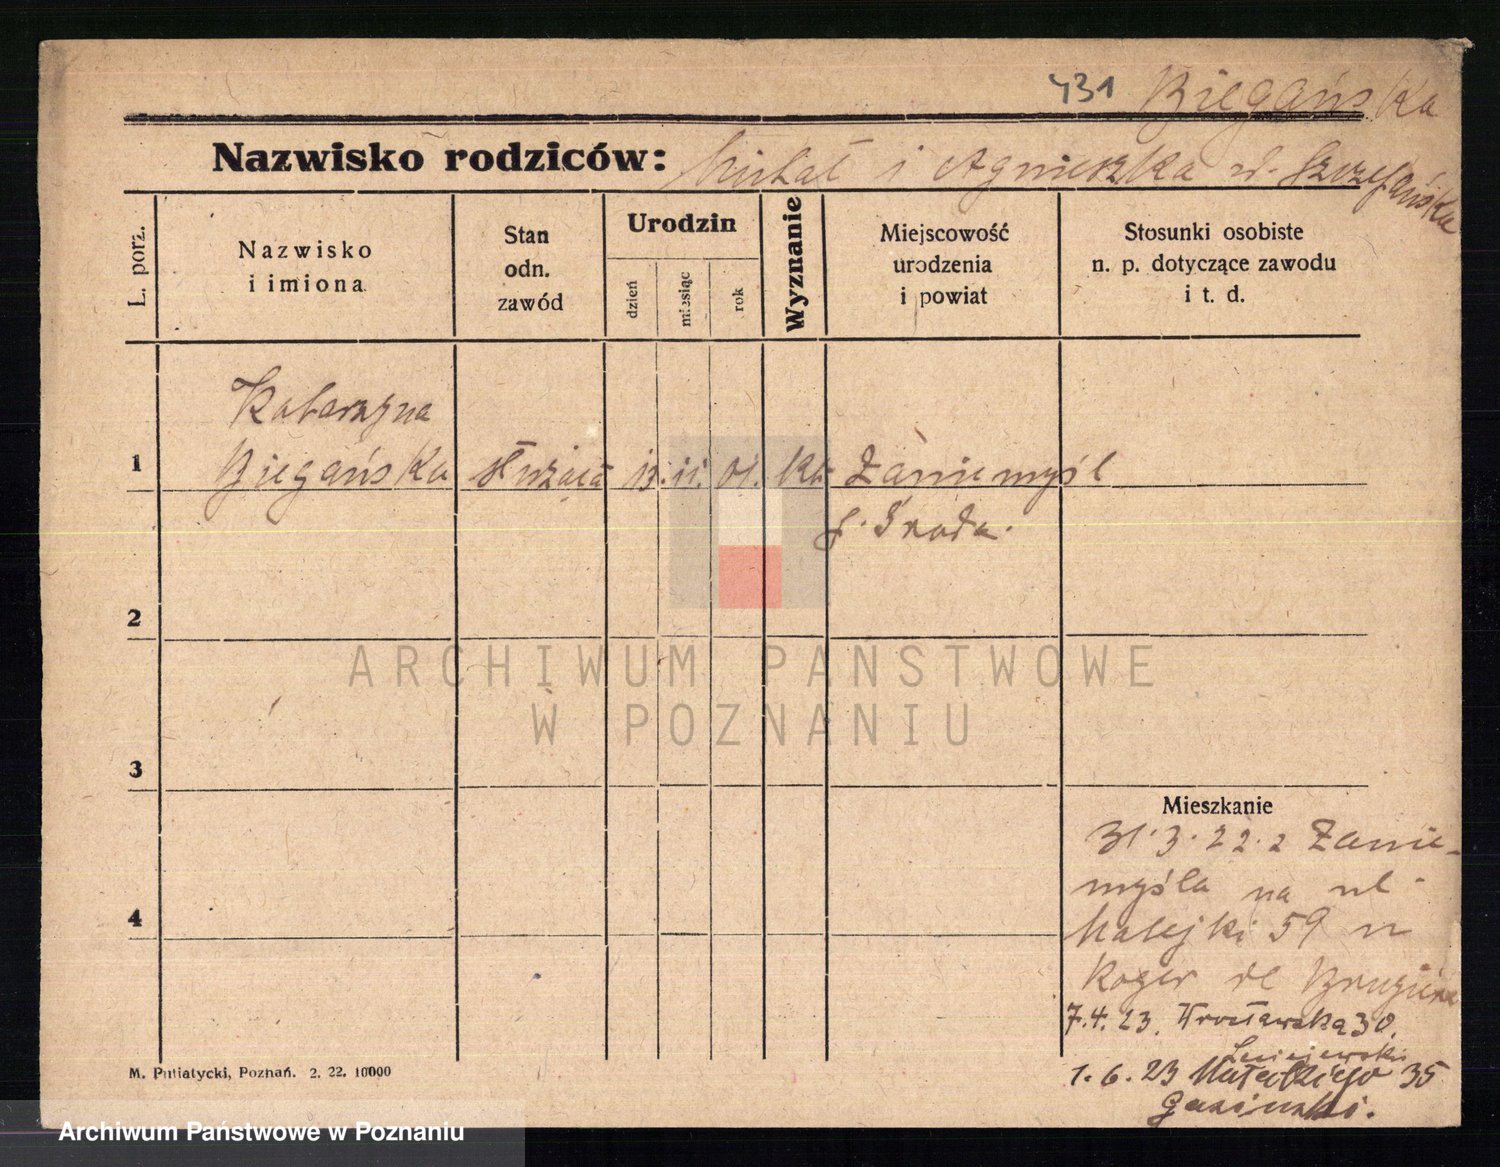 431 Biegańska
Nazwisko rodziców: Michał i Agnieszka d. Szczepańska
L. porz.
Nazwisko
i imiona
Stan
odn.
zawód
Urodzin
dzień
miesiąc
rok
Wyznanie
Miejscowość
urodzenia
i powiat
Stosunki osobiste
n. p. dotyczące zawodu
i t. d.
Katarzyna
1 Biegańska służąca 13. 11. 01. kt. Zaniemyśl
p. Środa.
2
ARCHIWUM PAŃSTWOWE
W POZNANIU
3
Mieszkanie
31.3.22. z Zanie-
myśla na ul.
4
Matejki 59 u
Roger de
7.4.23. Wrocławska 30.
1.6.23 Małeckiego 35
M. Putiatycki, Poznań. 2. 22. 10000
Archiwum Państwowe w Poznaniu